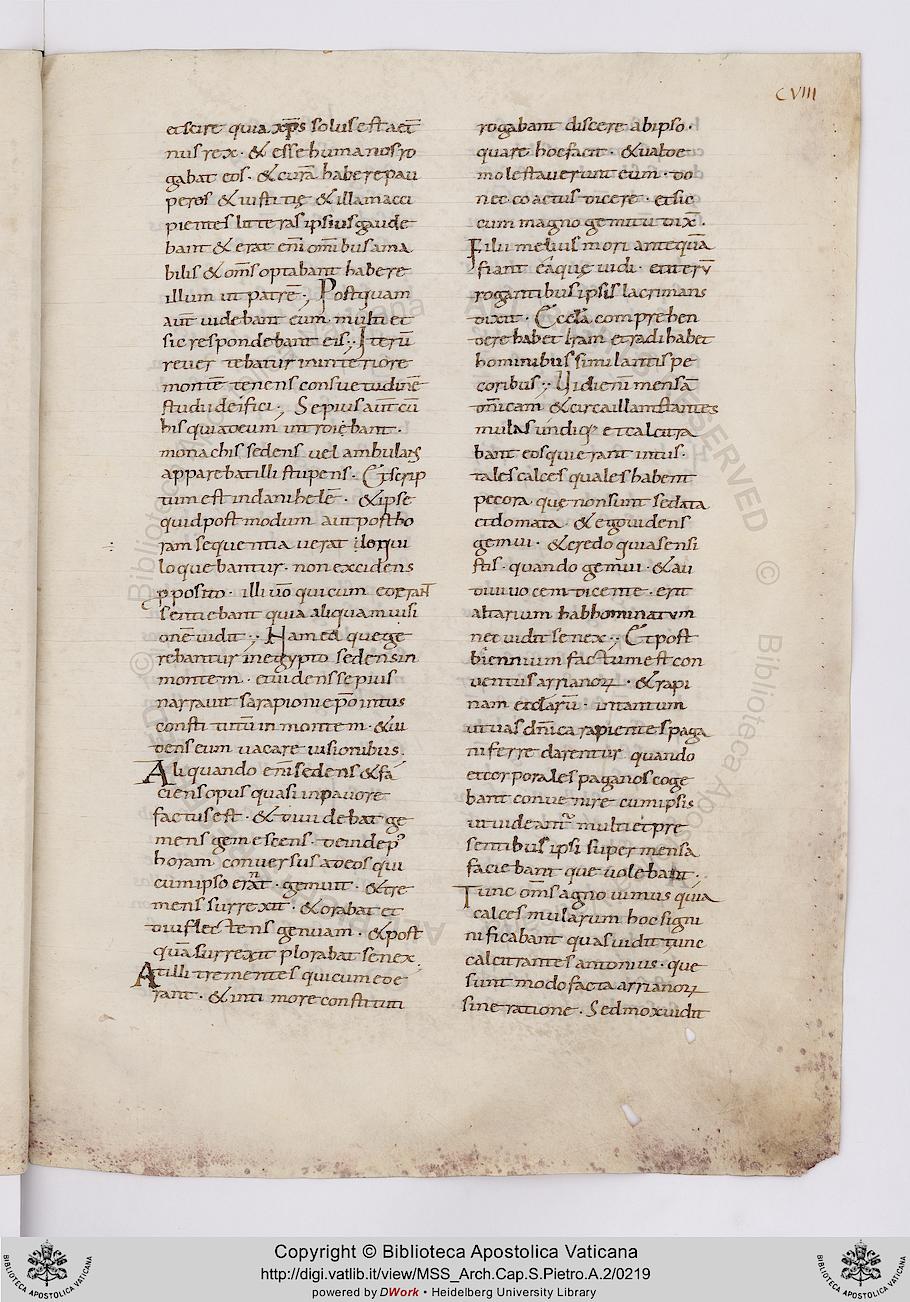 CVIII
etscire quia xp̄s solus est aet̄
nus rex · & esse humanos ro
gabat eos · & curā habere pau
peros & iustitię & illam acci
pientes litteras ipsius gaude
bant & erat eni omibus ama
bilis & om̄s optabant habere
illum ut patrē · Postquam
aut̄ uidebant eum · multi et
sic respondebant eis · Iterū
reuertebatur in interiore
montē tenens consuetudinē
studii deifici · Sepius aut̄ cū
his qui ad eum introiębant ·
monachis sedens uel ambulans
apparebat illi stupens · Et scrip
tum est in danihelē · & ipse
quid postmodum aut post ho
ram sequentia uerat iloqui
loquebantur · non excidens
pposito · illi ūo qui cum eo erant
sentiebant quia aliquam uisi
onē uidit · Nam ea que ge
rebantur in egypto sedens in
montem · et uidens sepius
narrauit sarapioni ep̄o intus
constitutū in montem · & ui
dens eum uacare uisionibus ·
Aliquando eni sedens & fa
ciens opus quasi in pauore
factus est · & diuidebat ge
mens gemescens · deinde p'
horam conuersus ad eos qui
cum ipso erant · gemuit · & tre
mens surrexit · & orabat et
diu flectens genuam · & post
quā surrexit plorabat senex
At illi trementes qui cum eo e
rant · & in timore constituti
rogabant discere ab ipso ·
quare hoc facit · & ualde
molestauerunt eum · do
nec coactus dicere · et sic
cum magno gemitu dix̄ ·
Filii melius mori antequā
fiant ea que uidi · et iterū
rogantibus ipsis lacrimans
dixit · Eccla comprehen
dere habet iram et tradi habet
hominibus similantis pe
coribus · Uidi eni mensā
dn̄icam & circa illam stantes
mulas undiq; et calcitra
bant eos qui erant intus ·
tales calces quales habent
pecora que non sunt sedata
et domata · & ego uidens
gemui · & credo quia sensi
stis · quando gemui · & au
diui uocem dicente · erit
altarium habhominatum
nec uidit senex · Et post
biennium factum est con
uentus arrianorꝝ · & rapi
nam ecclarū · in tantum
ut uas dn̄ica rapientes paga
ni ferre darentur quando
et corporales paganos coge
bant conuenire cum ipsis
ut uideant̄ multi et pre
sentibus ipsi super mensa
faciebant que uolebant ·
Tunc om̄s agnouimus quia
calces mularum hoc signi
nificabant quas uidit tunc
calcitrantes antonius · que
sunt modo facta arrianorꝝ
sine ratione · Sed mox uidit
Copyright © Biblioteca Apostolica Vaticana
http://digi.vatlib.it/view/MSS_Arch.Cap.S.Pietro.A.2/0219
powered by DWork • Heidelberg University Library
BIBLIOTECA APOSTOLICA VATICANA
BIBLIOTECA APOSTOLICA VATICANA